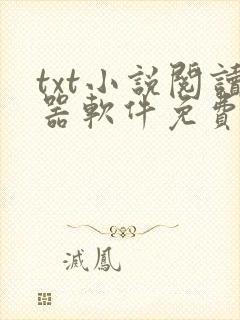 txt小説閱讀
器軟件免費
滅鳳